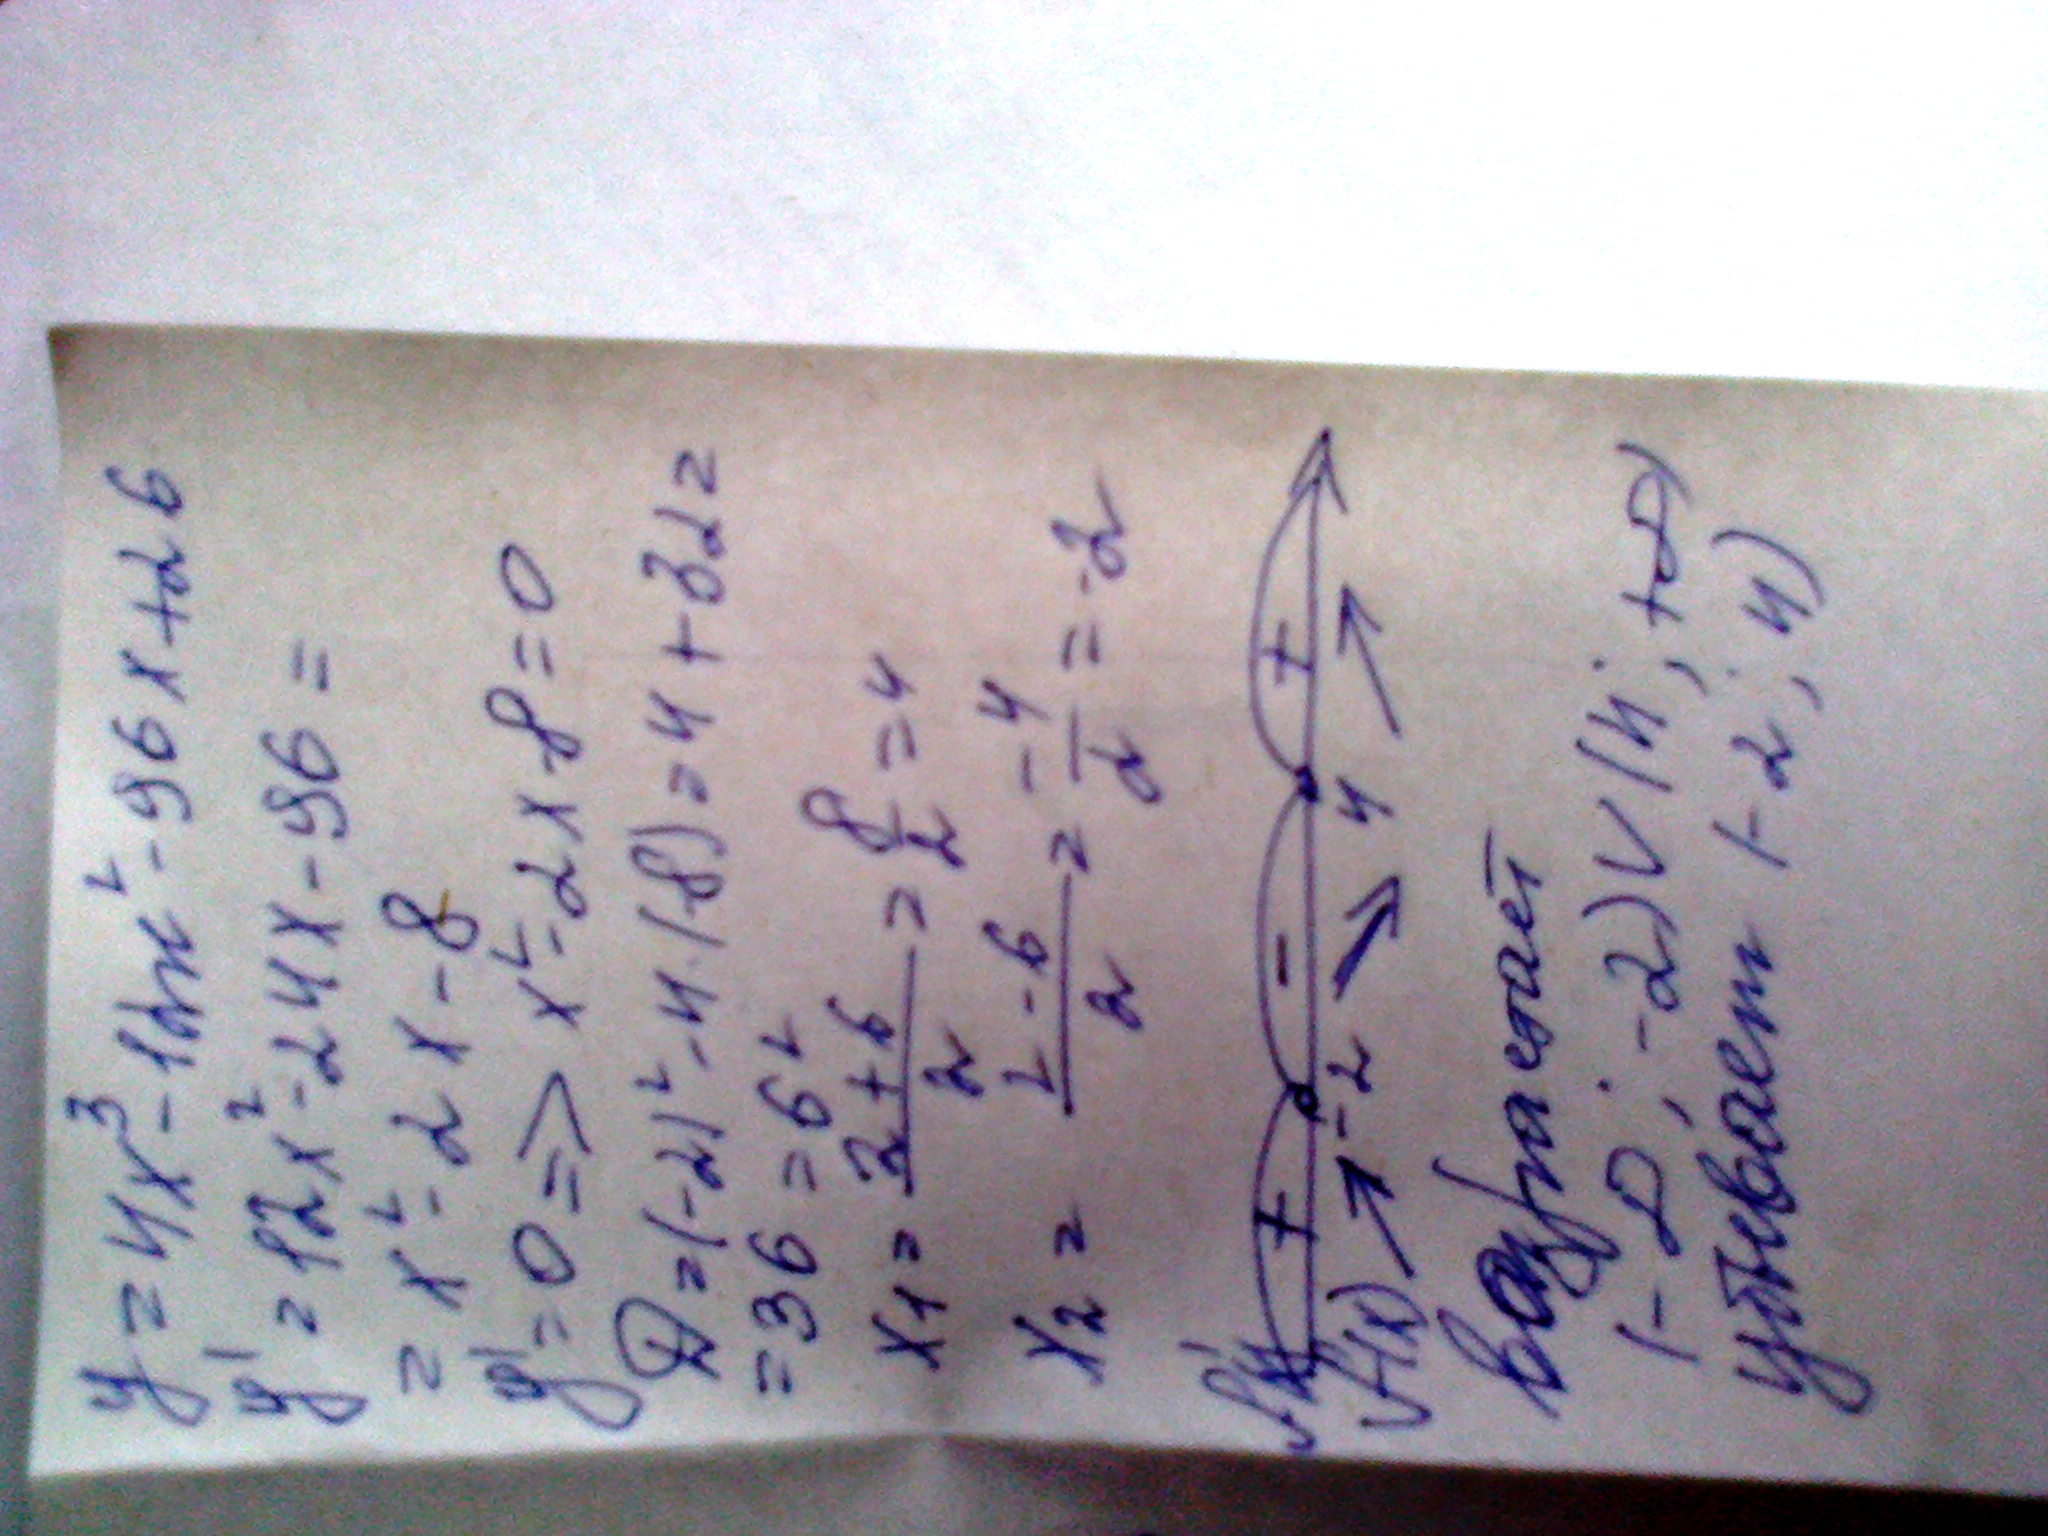 y = 4x³ - 12x² - 96x + 26
y' = 12x² - 24x - 96 =
= x² - 2x - 8
y' = 0 => x² - 2x - 8 = 0
D = (-2)² - 4·(-8) = 4 + 32 =
= 36 = 6²
x1 = (2+6)/2 = 8/2 = 4
x2 = (2-6)/2 = -4/2 = -2
+ - +
-2 4
f(x) ↗ ↘ ↗
возрастает
(-∞; -2) ∨ (4; +∞)
убывает (-2; 4)